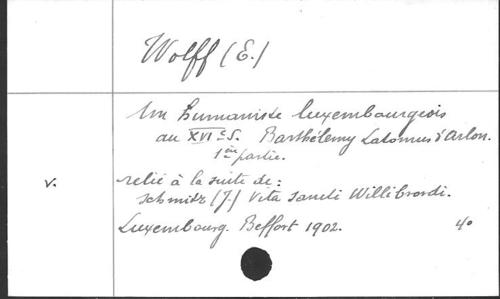 Wolff (E.)
Un humaniste luxembourgeois
au XVIe s. Barthélemy Latomus d'Arlon.
1ère partie.
v. relié à la suite de:
Schmitz (J.) Vita Sancti Willibrordi.
Luxembourg. Beffort 1902. 4o